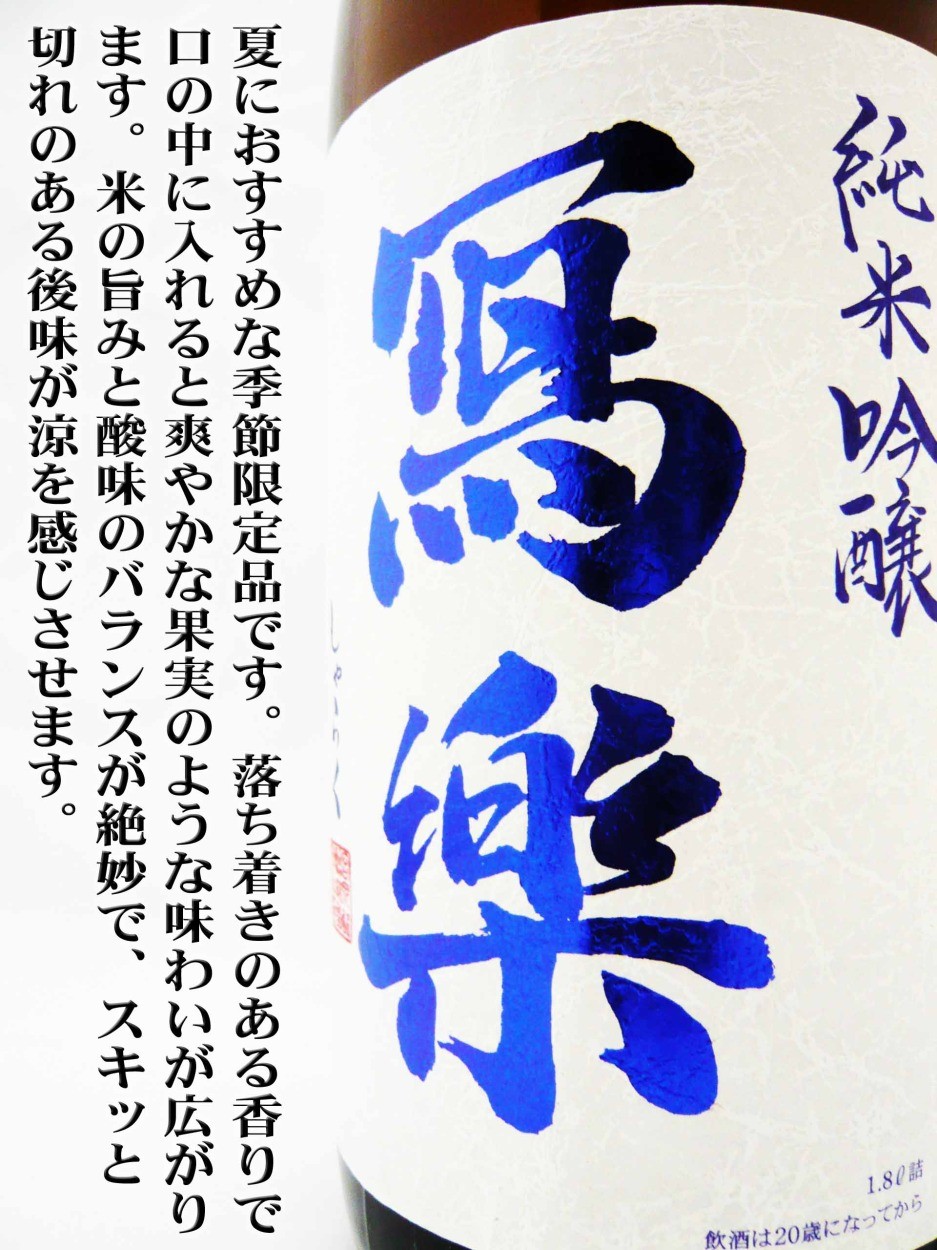 夏におすすめな季節限定品です。落ち着きのある香りで
口の中に入れると爽やかな果実のような味わいが広がり
ます。米の旨みと酸味のバランスが絶妙で、スキッと
切れのある後味が涼を感じさせます。
純米吟醸
寫樂
しゃらく
1.8ℓ詰
飲酒は20歳になってから